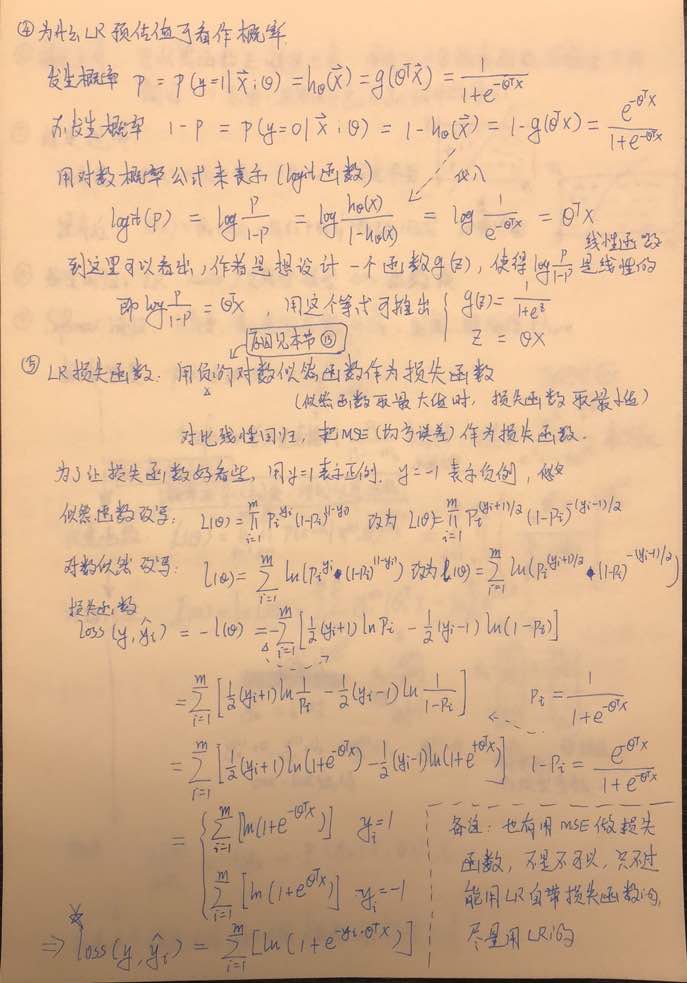 ④ 为什么LR预估值可看作概率
发生概率 p = p(y=1|x⃗;θ) = hθ(x⃗) = g(θᵀx⃗) = 1/(1+e^(-θᵀx))
不发生概率 1-p = p(y=0|x⃗;θ) = 1-hθ(x⃗) = 1-g(θᵀx) = e^(-θᵀx)/(1+e^(-θᵀx))
用对数概率公式来表示(logit函数) 代入
logit(p) = log p/(1-p) = log hθ(x)/(1-hθ(x)) = log 1/e^(-θᵀx) = θᵀx
线性函数
到这里可以看出,作者是想设计一个函数g(z),使得log p/(1-p)是线性的
即 log p/(1-p) = θᵀx, 用这个等式可推出 { g(z) = 1/(1+e^z)
z = θX
见本节⑬
⑤ LR损失函数: 用负的对数似然函数作为损失函数
(似然函数取最大值时, 损失函数取最小值)
对比线性回归, 把MSE(均方误差)作为损失函数.
为了让损失函数好看些, 用y=1表示正例, y=-1表示负例,
似然函数改写: L(θ) = ∏_{i=1}^{m} Pi^{yi}(1-Pi)^{(1-yi)} 改为 L(θ) = ∏_{i=1}^{m} Pi^{(yi+1)/2}(1-Pi)^{-(yi-1)/2}
对数似然改写: l(θ) = ∑_{i=1}^{m} ln(Pi^{yi}·(1-Pi)^{(1-yi)}) 改为 l(θ) = ∑_{i=1}^{m} ln(Pi^{(yi+1)/2}·(1-Pi)^{-(yi-1)/2})
损失函数
loss(y,ŷi) = -l(θ) = -∑_{i=1}^{m} [½(yi+1)lnPi - ½(yi-1)ln(1-Pi)]
= ∑_{i=1}^{m} [½(yi+1)ln 1/Pi - ½(yi-1)ln 1/(1-Pi)] Pi = 1/(1+e^(-θᵀx))
= ∑_{i=1}^{m} [½(yi+1)ln(1+e^(-θᵀx)) - ½(yi-1)ln(1+e^(+θᵀx))] 1-Pi = e^(-θᵀx)/(1+e^(-θᵀx))
= { ∑_{i=1}^{m} [ln(1+e^(-θᵀx))] yi=1
∑_{i=1}^{m} [ln(1+e^(θᵀx))] yi=-1
⇒ loss(y,ŷi) = ∑_{i=1}^{m} [ln(1+e^(-yi·θᵀx))]
备注: 也有用MSE做损失
函数, 不是不可以, 只不过
能用LR自带损失函数的,
尽量用LR的